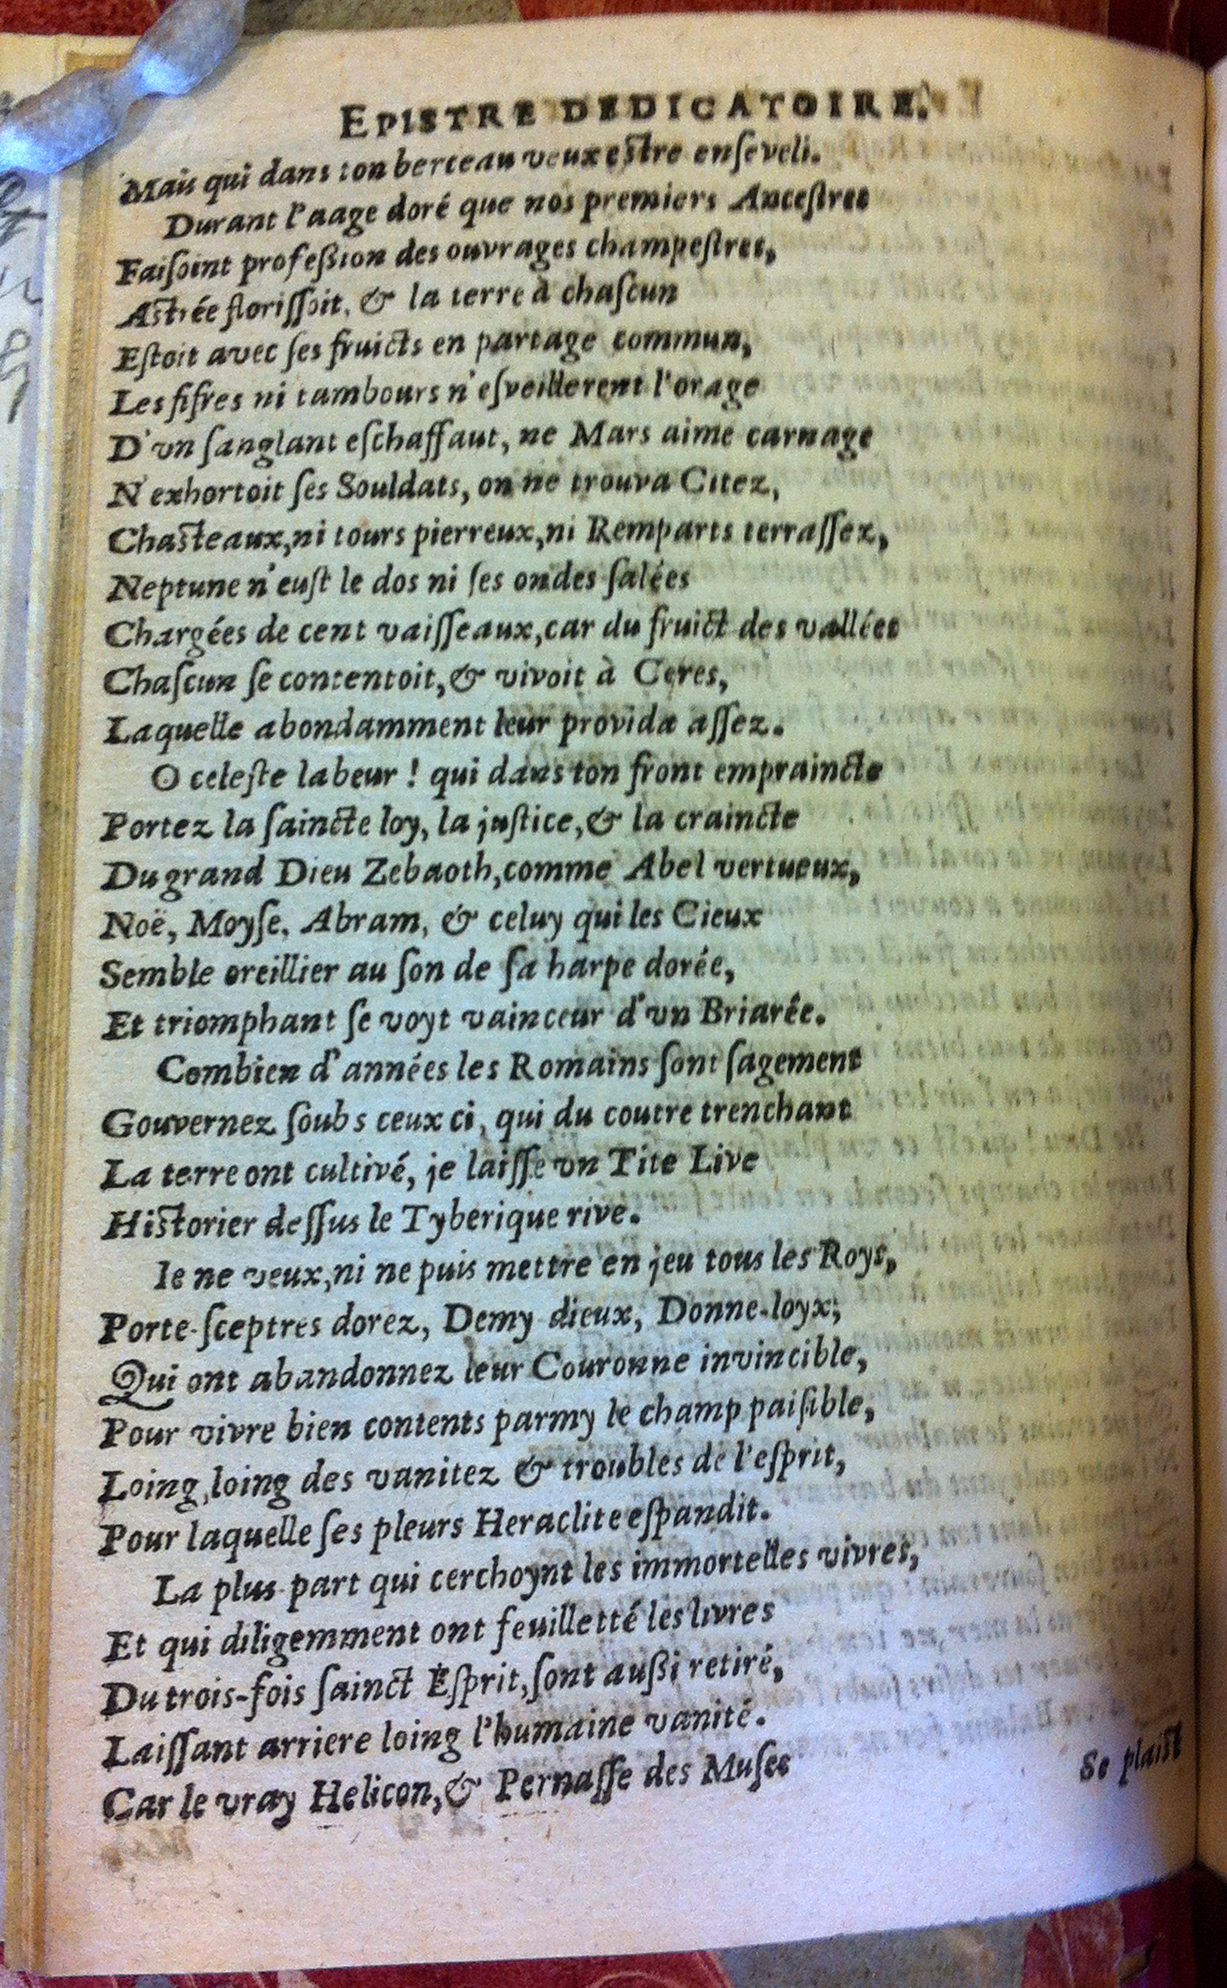 EPISTRE DEDICATOIRE.
Mais qui dans ton berceau veux estre enſeveli.
Durant l'aage doré que nos premiers Anceſtres
Faiſoint profeßion des ouvrages champeſtres,
Astrée floriſſoit, & la terre à chaſcun
Eſtoit avec ſes fruicts en partage commun,
Les fifres ni tambours n'eſveillerent l'orage
D'vn ſanglant eſchaffaut, ne Mars aime carnage
N'exhortoit ſes Souldats, on ne trouva Citez,
Chasteaux,ni tours pierreux,ni Remparts terraſſez,
Neptune n'euſt le dos ni ſes ondes ſalées
Chargées de cent vaiſſeaux,car du fruict des vallées
Chaſcun ſe contentoit,& vivoit à Ceres,
Laquelle abondamment leur provida aſſez.
O celeſte labeur ! qui dans ton front empraincte
Portez la ſaincte loy, la juſtice,& la craincte
Du grand Dieu Zebaoth,comme Abel vertueux,
Noë, Moyſe, Abram, & celuy qui les Cieux
Semble oreillier au ſon de ſa harpe dorée,
Et triomphant ſe voyt vainceur d'vn Briarée.
Combien d'années les Romains ſont ſagement
Gouvernez ſoubs ceux ci, qui du coutre trenchant
La terre ont cultivé, je laiſſe vn Tite Live
Historier deſſus le Tyberique rive.
Ie ne veux,ni ne puis mettre en jeu tous les Roys,
Porte-ſceptres dorez, Demy dieux, Donne-loyx;
Qui ont abandonnez leur Couronne invincible,
Pour vivre bien contents parmy le champ paiſible,
Loing,loing des vanitez & troubles de l'eſprit,
Pour laquelle ſes pleurs Heraclite eſpandit.
La plus part qui cerchoynt les immortelles vivres,
Et qui diligemment ont feuilletté les livres
Du trois-fois ſainct Eſprit,ſont außi retiré,
Laiſſant arriere loing l'humaine vanité.
Car le vray Helicon,& Pernaſſe des Muſes
Se plaist